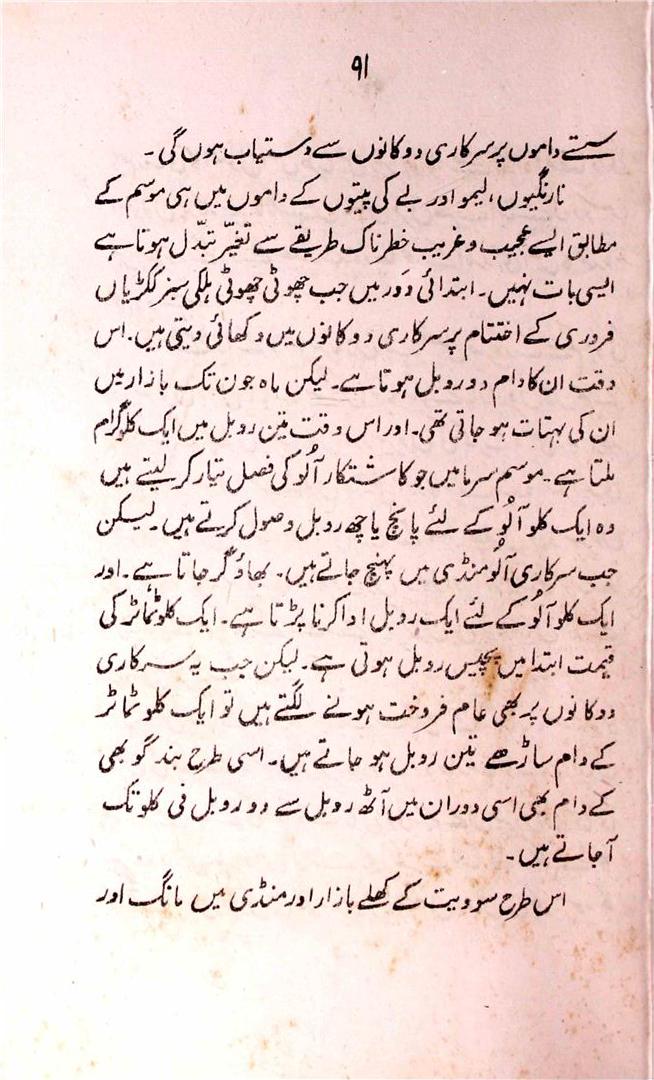 ۹۱
سستے داموں پر سرکاری دوکانوں سے دستیاب ہوں گی۔
نارنگیوں، لیمو اور بے کی پیتوں کے داموں میں ہی موسم کے
مطابق ایسے عجیب و غریب خطرناک طریقے سے تغیّر تبدّل ہوتا ہے
ایسی بات نہیں۔ ابتدائی دَور میں جب چھوٹی چھوٹی ہلکی سبز ککڑیاں
فروری کے اختتام پر سرکاری دوکانوں میں دکھائی دیتی ہیں۔ اس
وقت ان کا دام دو روبل ہوتا ہے۔ لیکن ماہ جون تک بازار میں
ان کی بہتات ہو جاتی تھی۔ اور اس وقت تین روبل میں ایک کلوگرام
ملتا ہے۔ موسم سرما میں جو کاشتکار آلُو کی فصل تیار کر لیتے ہیں
وہ ایک کلو آلُو کے لئے پانچ یا چھ روبل وصول کرتے ہیں۔ لیکن
جب سرکاری آلُو منڈی میں پہنچ جاتے ہیں۔ بھاؤ گر جاتا ہے۔ اور
ایک کلو آلُو کے لئے ایک روبل ادا کرنا پڑتا ہے۔ ایک کلو ٹماٹر کی
قیمت ابتدا میں پچیس روبل ہوتی ہے۔ لیکن جب یہ سرکاری
دوکانوں پر بھی عام فروخت ہونے لگتے ہیں تو ایک کلو ٹماٹر
کے دام ساڑھے تین روبل ہو جاتے ہیں۔ اسی طرح بند گوبھی
کے دام بھی اسی دوران میں آٹھ روبل سے دو روبل فی کلو تک
آ جاتے ہیں۔
اس طرح سوویت کے کھلے بازار اور منڈی میں مانگ اور